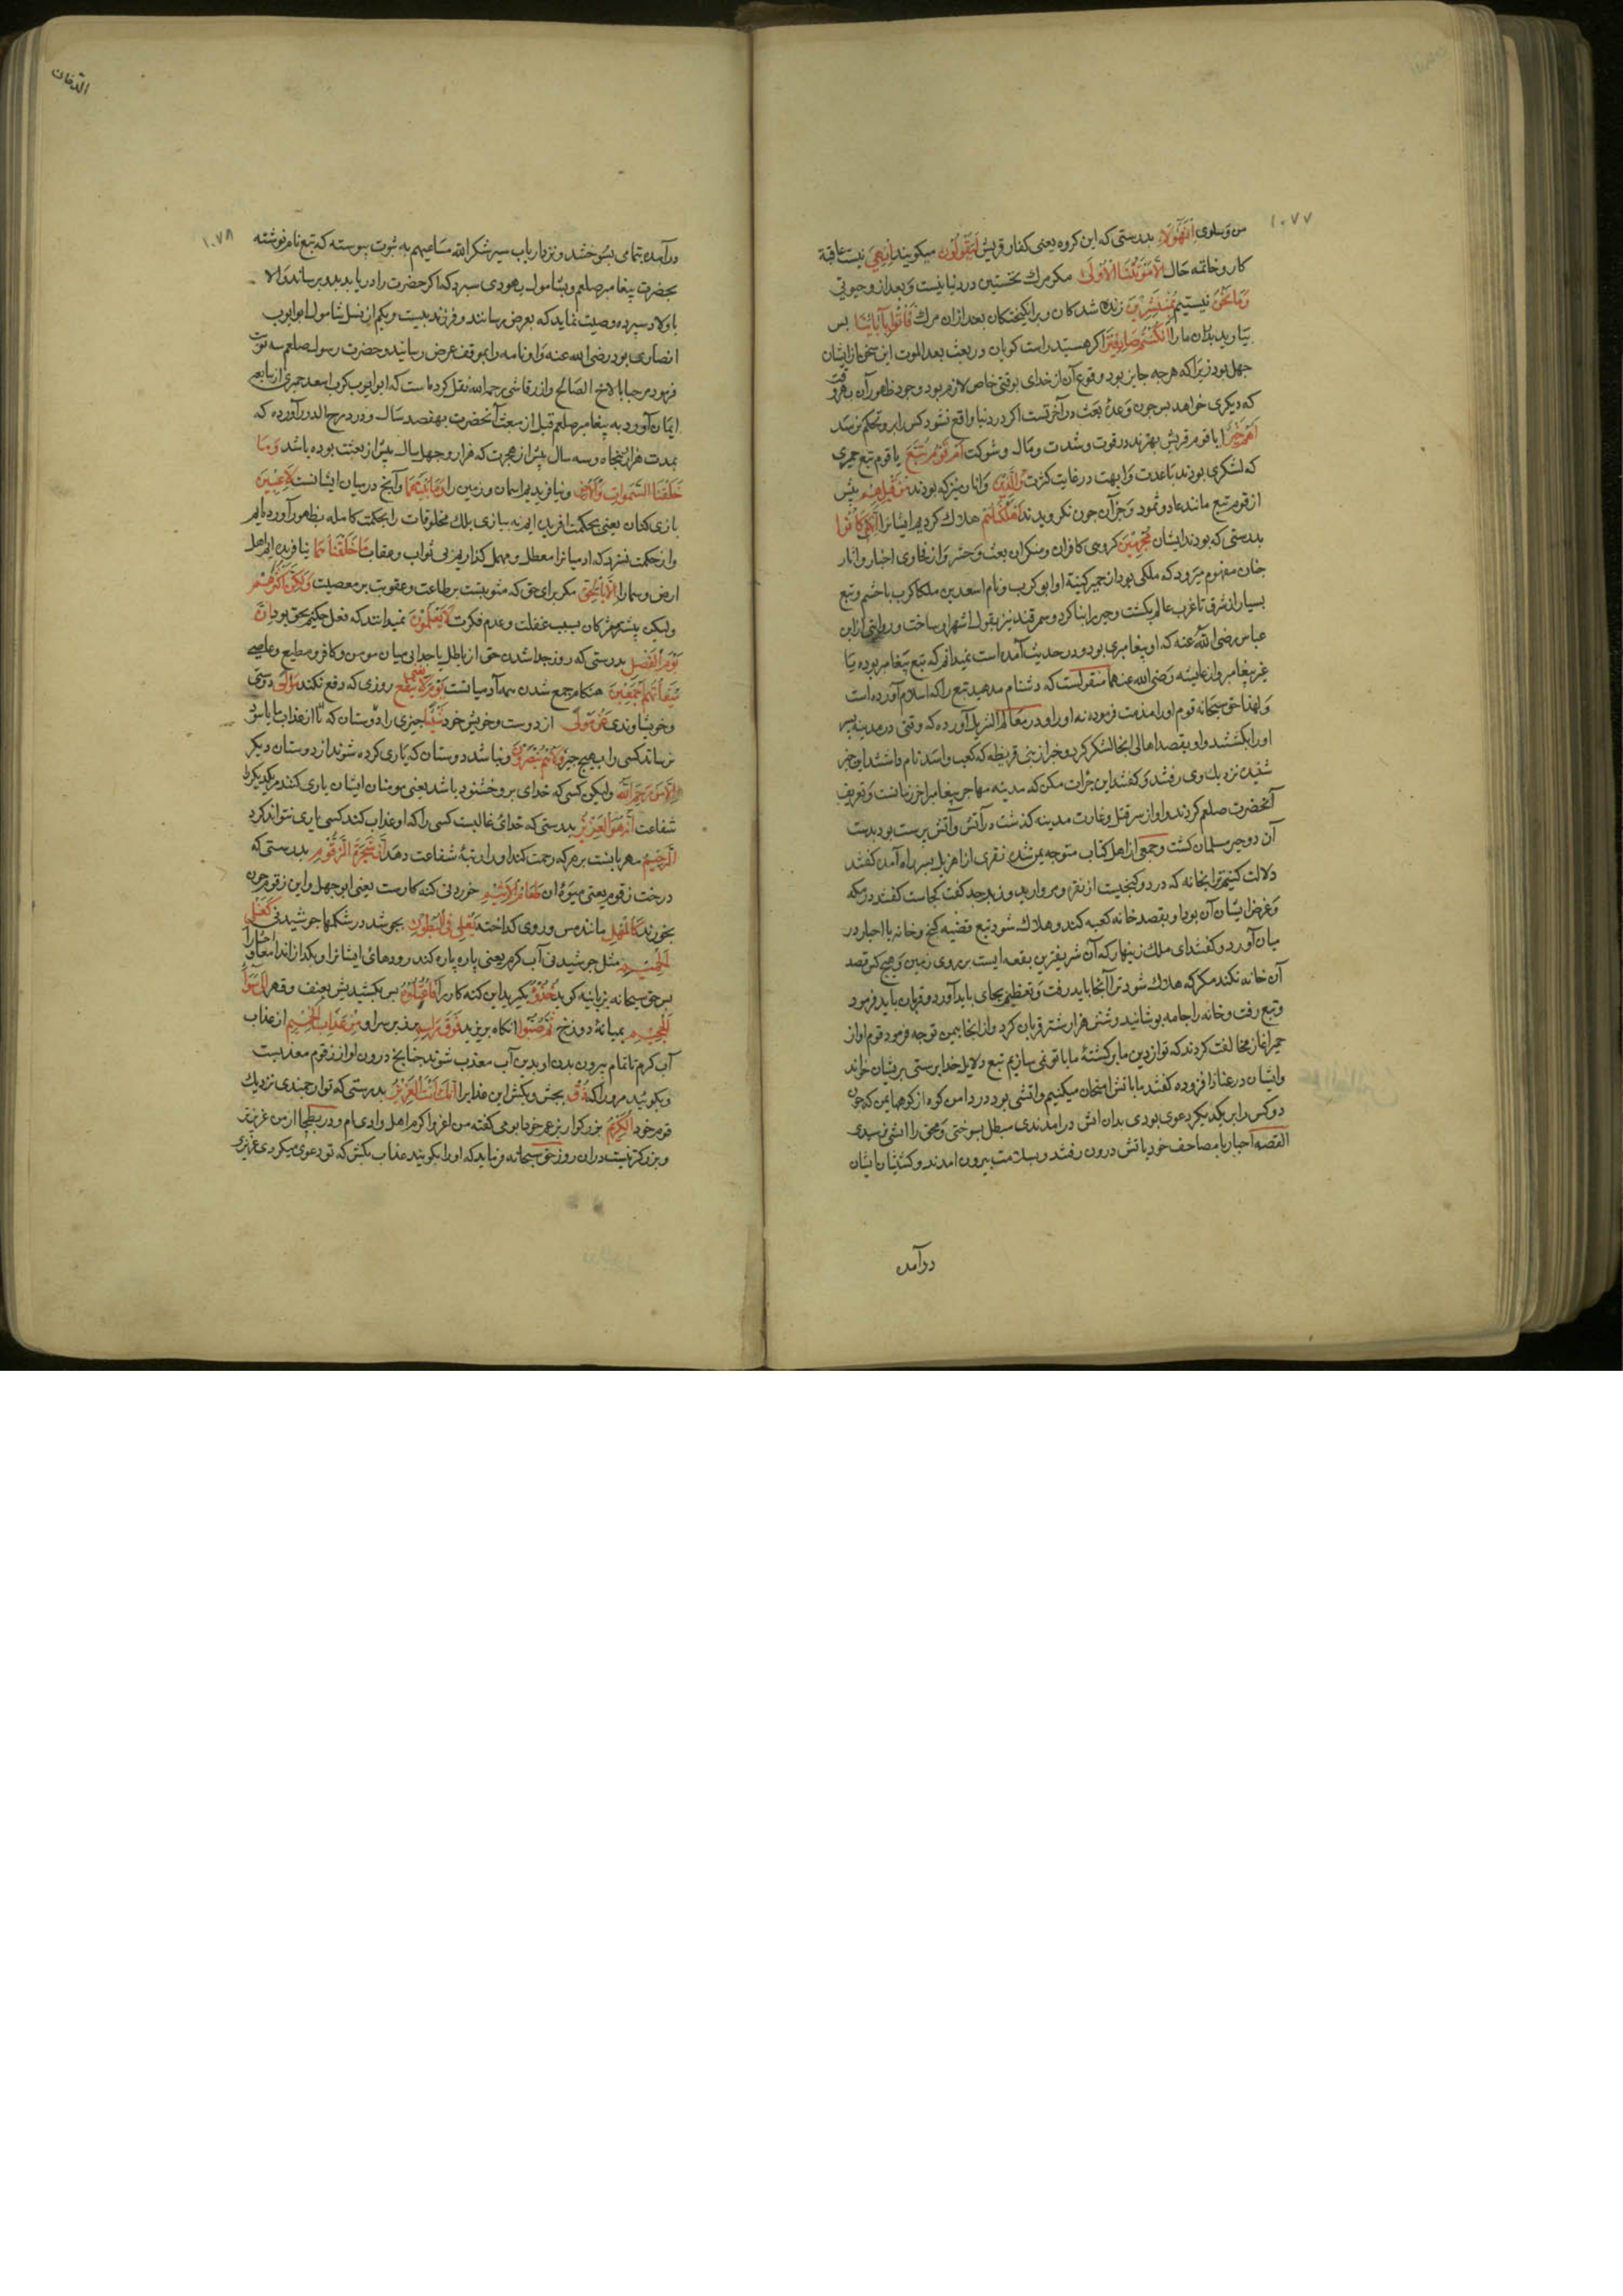 ۱۰۷۷
من و سلوی اِنَّ هٰٓؤُلَآءِ بدرستی که این کروه یعنی کفار قریش لَیَقُولُونَ میکویند اِنْ هِیَ نیست عاقبة
کار و خاتمه حال اِلَّا مَوْتَتُنَا الْاُولٰی مکر مرك نخستین در دنیا نیست و بعد ازو حیوتی
وَمَا نَحْنُ نیستیم بِمُنْشَرِینَ زنده شدکان و برانکیختکان بعد ازان مرك فَأْتُوا بِآبَائِنَا بس
بیارید بدران ما را اِنْ کُنْتُمْ صَادِقِینَ اکر هستید راست کویان در بعث بعد الموت این سخن از ایشان
جهل بود زیرا که هرچه جایز بود وقوع آن از خدای بوقتی خاص لازم بود وجود ظهور آن بهر وقت
که دیکری خواهد بس چون وعدهٔ بعث در آخرتست اکر در دنیا واقع نشود کس را برو تحکم نرسد
اَهُمْ خَیْرٌ ایا قوم قریش بهترند در قوت و شدت و مال و شوکت اَمْ قَوْمُ تُبَّعٍ یا قوم تبع حمیری
که لشکری بودند با عدت و ابهت در غایت کثرت وَالَّذِینَ و انان نیز که بودند مِنْ قَبْلِهِمْ پیش
از قوم تبع مانند عاد و ثمود و جز آن چون نکرویدند اَهْلَکْنَاهُمْ هلاك کردیم ایشانرا اِنَّهُمْ کَانُوا
بدرستی که بودند ایشان مُجْرِمِینَ کروهی کافران و منکران بعث و حشر و از فحاوی اخبار و اثار
چنان مفهوم میرود که ملکی بود از حمیر کنیة او ابو کرب و نام اسعد بن ملکا کرب با حشم و تبع
بسیار از شرق تا غرب عالم بکشت و حیره را بنا کرد و سمرقند نیز بقول اشهر او ساخت و روایتی از ابن
عباس رضی الله عنه که او پیغامبری بود و در حدیث آمده است نمیدانم که تبع پیغامبر بوده یا
غیر پیغامبر و از عایشه رضی الله عنها منقولست که دشنام مدهید تبع را که اسلام آورده است
و لهذا حق سبحانه قوم او را مذمت فرموده نه او را و در معالم التنزیل آورده که وقتی در مدینه پسر
او را بکشتند و او بقصد اهالی انجا لشکر کرد و خبر از بنی قریظه که کعب و اسد نام داشتند این خبر
شنیده نزدیك وی رفتند و کفتند این جرات مکن که مدینه مهاجر پیغامبر اخر زمانست و تعریف
آنحضرت صلعم کردند و او از سر قتل و غارت مدینه کذشت و از آتش و آتش پرست بود بدست
آن دو حبر مسلمان کشت و جمعی از اهل کتاب متوجه یمن شده نفری از هزیل بسر راه آمده کفتند
دلالت کنیم ترا بخانه که در و کنجیست از نقره و مروارید و زبرجد کفت کجاست کفتند در مکه
و غرض ایشان آن بود او بقصد خانه کعبه کند و هلاك شود تبع قضیه کنج و خانه با احبار در
میان آورد و کفتند ای ملك زینهار که آن شریفترین بقعه ایست بر روی زمین و هیچ کس قصد
آن خانه نکند مکر که هلاك شود ترا آنجا باید رفت و تعظیم بجای باید آورد و قربان باید فرمود
و تبع رفت و خانه را جامه بوشانید و شش هزار شتر قربان کرد و از انجا بیمن توجه فرمود قوم او از
حمیر اغاز مخالفت کردند که تو از دین ما برکشتهٔ ما با تو نمی سازیم تبع دلایل خدا پرستی بر یشان خواند
و ایشان در عناد افزوده کفتند ما باتش امتحان میکنیم و اتشی بود در دامن کوه از کوههای یمن که چون
دو کس را بر یکدیکر دعوی بودی بدان اتش در امدندی مبطل بسوختی و محق را اتش نرسیدی
القصه احبار با مصاحف خود باتش درون رفتند و سلامت بیرون امدند و کشیشان ایشان
درآمده
الدخان
۱۰۷۸
درآمده بتمامی بسوختند و نزد ارباب سیر شکر الله مساعیهم به ثبوت پیوسته که تبع نام نوشته
بحضرت پیغامبر صلعم و بشامول یهودی سپرد که اکر حضرت را دریابد بدو برساند و الا
باولاد سپرده وصیت نماید که بعرض رسانند و فرزند بیست و یکم از نسل شامول ابو ایوب
انصاری بود رضی الله عنه و او نامه را بموقف عرض رسانید و حضرت رسول صلعم سه نوبت
فرمود مرحبا بالاخ الصالح و از رقاشی رحمه الله نقل کرده است که ابو کرب اسعد حمیری از تبابعه
ایمان آورد به پیغامبر صلعم قبل از بعثت آنحضرت بهفصد سال و در درج الدرر آورده که
بمدت هزار و پنجاه و سه سال پیش از هجرت که هزار و چهل سال پیش از بعثت بوده باشد وَمَا
خَلَقْنَا السَّمٰوَاتِ وَالْاَرْضَ و نیافریدیم اسمان و زمین را وَمَا بَیْنَهُمَا و آنچ در میان ایشانست لَاعِبِینَ
بازی کنان یعنی بحکمت افریده ایم نه ببازی بلك مخلوقات را بحکمت کامله بظهور آورده ایم
و از حکمت نسزد که ادمیانرا معطل و مهمل کذاریم بی ثواب و عقاب مَا خَلَقْنَاهُمَا نیافریده ایم اهل
ارض و سما را اِلَّا بِالْحَقِّ مکر برای حق که مثوبتست بر طاعت و عقوبت بر معصیت وَلٰکِنَّ اَکْثَرَهُمْ
ولیکن بیشتر مشرکان بسبب غفلت و عدم فکرت لَا یَعْلَمُونَ نمیدانند که فعل حکیم بحق بود اِنَّ
یَوْمَ الْفَصْلِ بدرستی که روز جدا شدن حق از باطل یا جدایی میان مومن و کافر و مطیع و عاصی
مِیقَاتُهُمْ اَجْمَعِینَ هنکام جمع شدن همه آدمیانست یَوْمَ لَا یُغْنِی روزی که دفع نکند مَوْلًی دوستی
و خویشاوندی عَنْ مَوْلًی از دوست و خویش خود شَیْئًا چیزی را دوستان که تا از عذاب یا باس
نرساند کسی را بهیچ چیز وَلَا هُمْ یُنْصَرُونَ و نباشد دوستان که یاری کرده شوند از دوستان دیکر
اِلَّا مَنْ رَحِمَ اللّٰهُ ولیکن کسی که خدای برو خشنود باشد یعنی مومنان ایشان یاری کنند مر یکدیکر را
شفاعت اِنَّهُ هُوَ الْعَزِیزُ بدرستی که خدای غالبست کسی را که او عذاب کند کسی یاری نتواند کرد
الرَّحِیمُ مهربانست بر هرکه رحمت کند او را رتبهٔ شفاعت دهد اِنَّ شَجَرَةَ الزَّقُّومِ بدرستی که
درخت زقوم یعنی میوه ان طَعَامُ الْاَثِیمِ خوردنی کنه کارست یعنی ابوجهل و این زقوم چون
بخورند کَالْمُهْلِ مانند مس و روی کداخته یَغْلِی فِی الْبُطُونِ بجوشد در شکمها جوشیدنی کَغَلْیِ
الْحَمِیمِ مثل جوشیدن آب کرم یعنی پاره پاره کند رودهای ایشانرا و بکدازاند امعا و احشا را
بس حق سبحانه بزبانیه کوید خُذُوهُ بکیرید این کنه کار را فَاعْتِلُوهُ بس بکشیدش بعنف و قهر اِلٰی سَوَآءِ
الْجَحِیمِ بمیانهٔ دوزخ ثُمَّ صُبُّوا انکاه بریزید فَوْقَ رَأْسِهِ بر زبر سر او مِنْ عَذَابِ الْحَمِیمِ از عذاب
آب کرم تا تمام بیرون بدن او بدین آب معذب شود چنانچ درون او از زقوم معذبست
و بکویند مرو را که ذُقْ بچش و بکش این عذاب را اِنَّكَ اَنْتَ الْعَزِیزُ بدرستی که تو ارجمندی نزدیك
قوم خود الْکَرِیمُ بزرکوار بزعم خود ابوجهل کفته من اعز و اکرم اهل وادی ام و در بطحا از من عزیزتر
و بزرکتر نیست در ان روز حق سبحانه فرماید که او را بکویند عذاب بکش که تو دعوی میکردی عزیزی